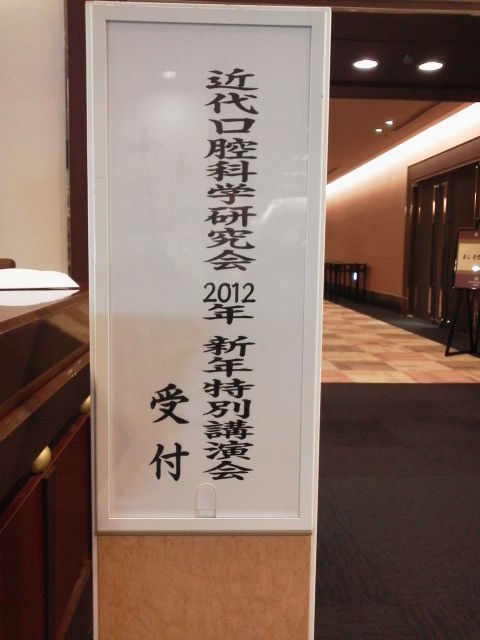 近代口腔科学研究会 2012年 新年特別講演会
受付